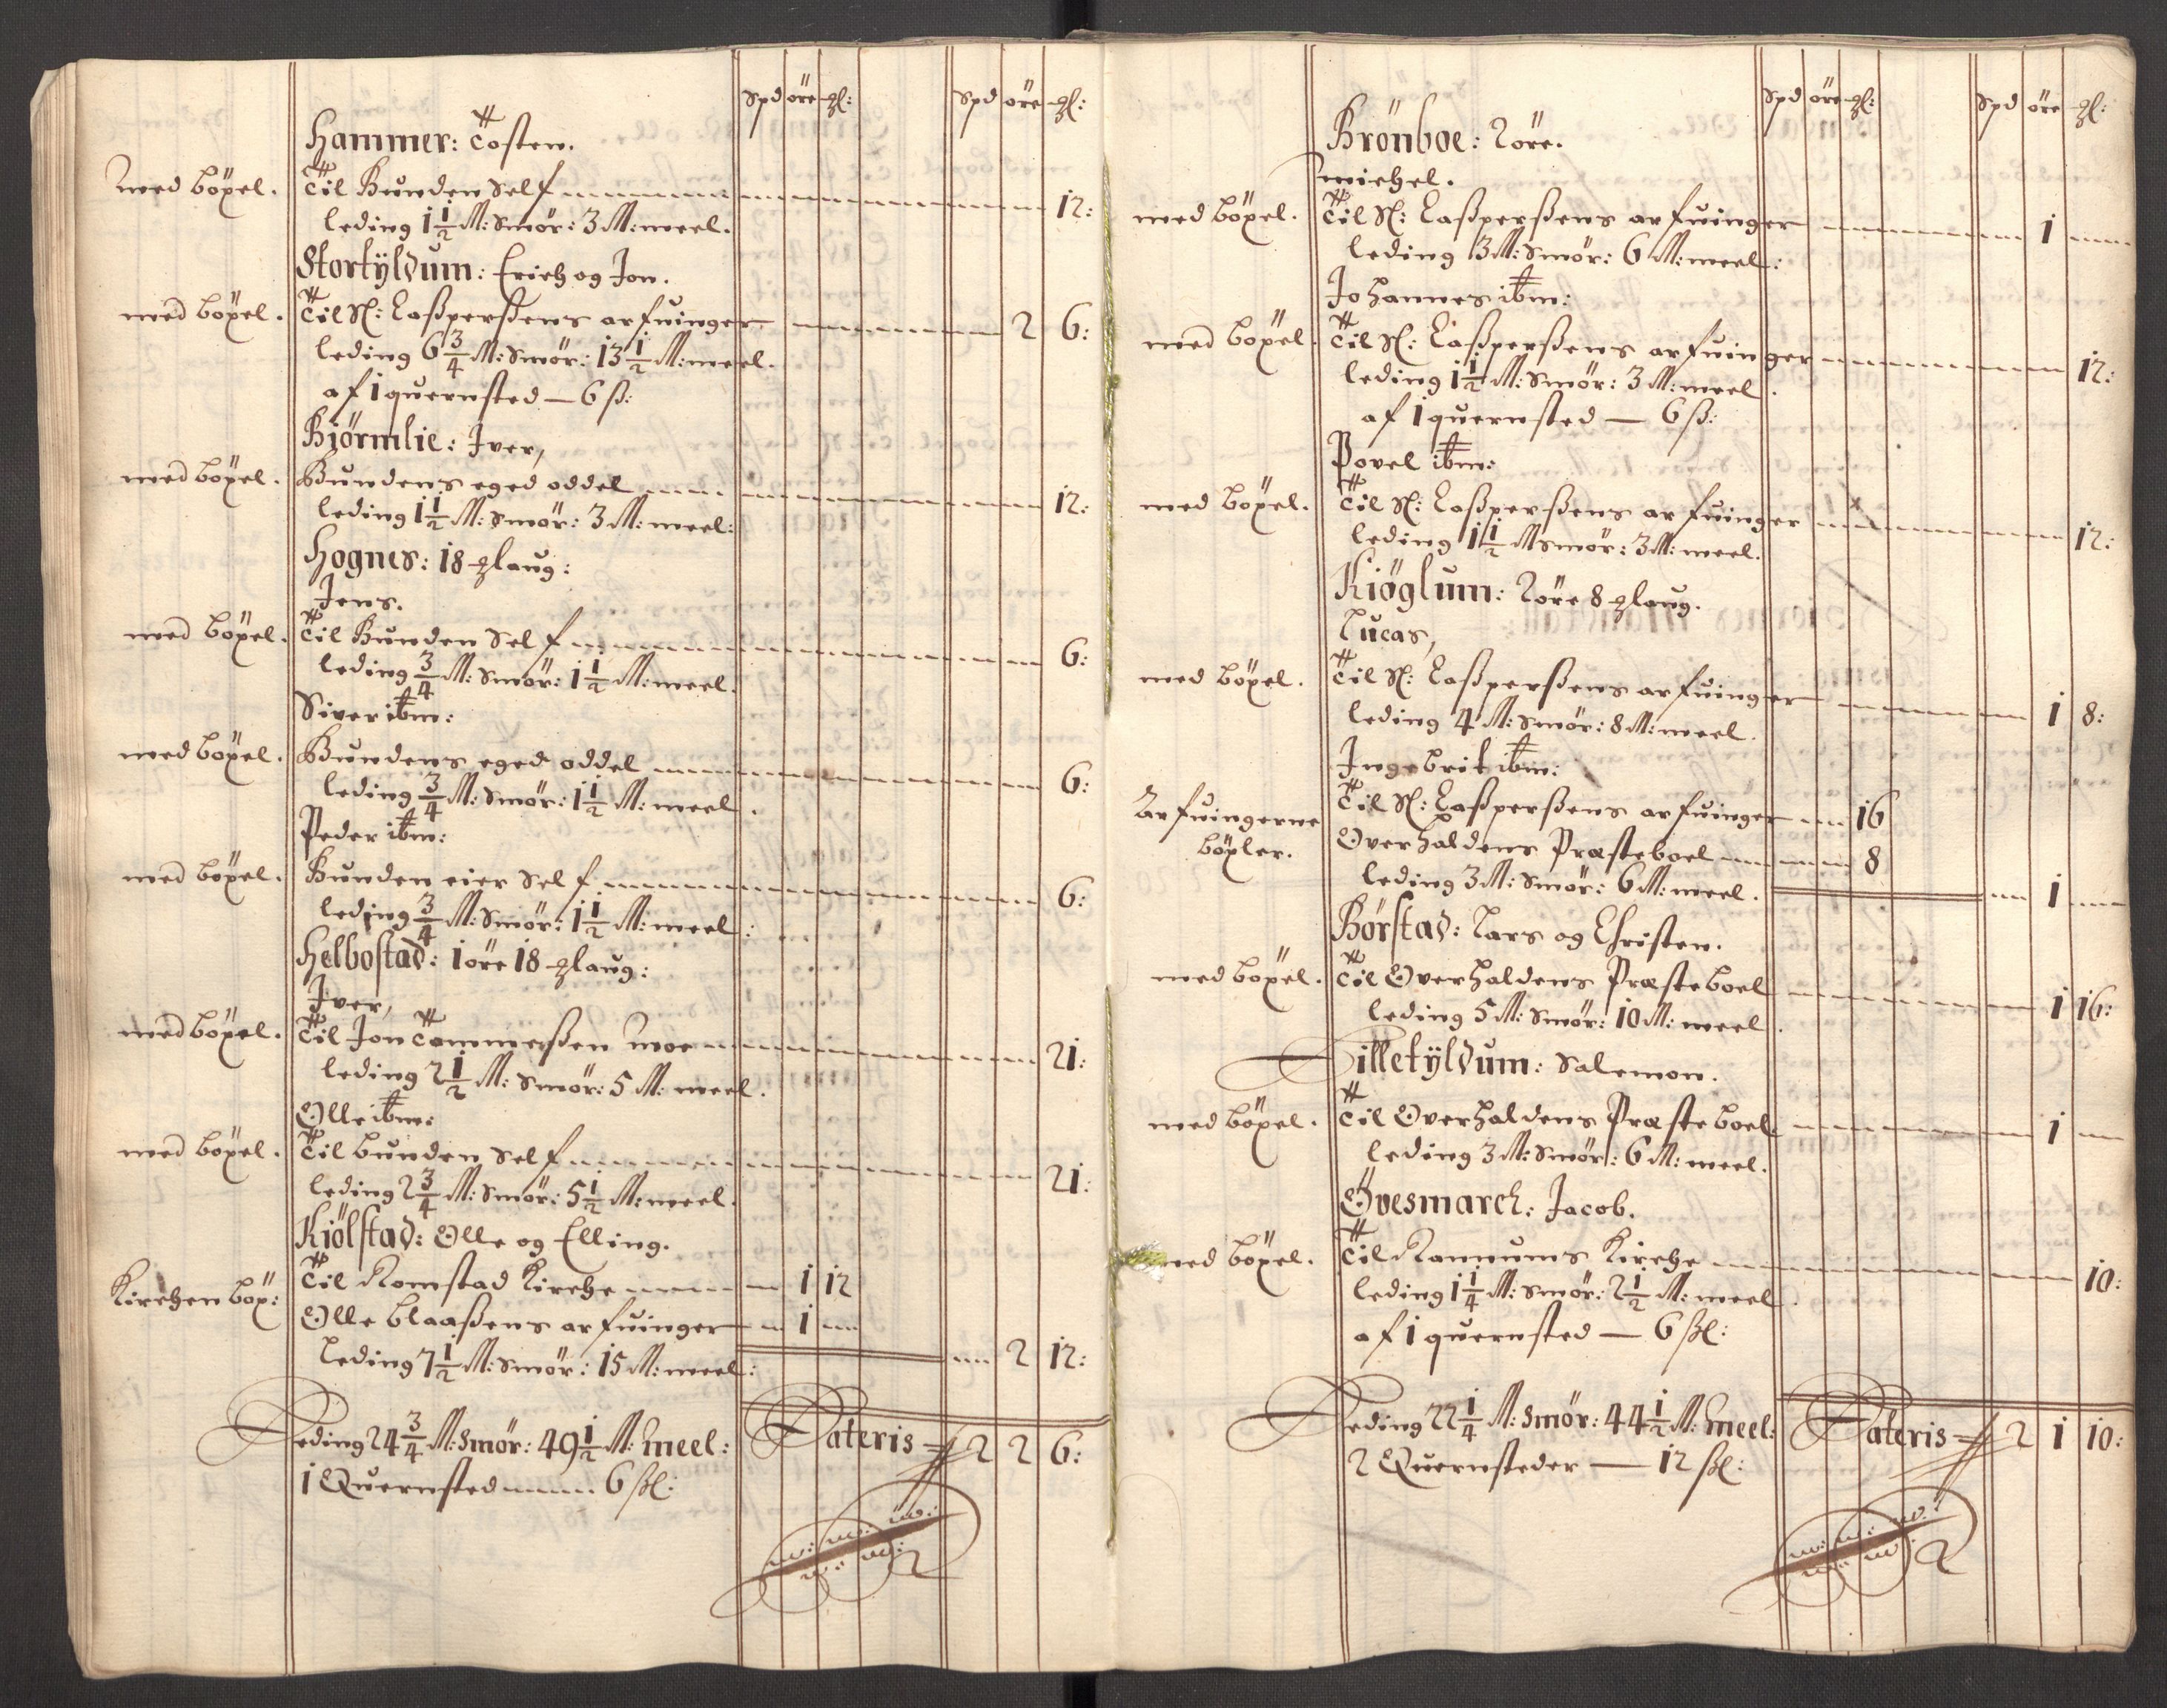 Spd öre ₰l: Spd öre ₰l:
Hammer: Tosten.
med böxel. Til Bunden Self 12:
leding 1 1/2 M: Smör: 3 M: meel.
Stortÿldum: Erich og Jon.
med böxel. Til Sl: Caßperßens arfuinger 2 6:
leding 6 3/4 M: Smör: 13 1/2 M: meel.
af 1 quernsted — 6 ß:
Biörmlie: Iver,
med böxel. Bundens eged oddel 12:
leding 1 1/2 M: Smör: 3 M: meel:
Hognes: 18 ₰laug:
Jens.
med böxel. Til Bunden Self 6:
leding 3/4 M: Smör: 1 1/2 M: meel.
Siver ibm:
med böxel. Bundens eged oddel 6:
leding 3/4 M: Smör: 1 1/2 M: meel.
Peder ibm:
med böxel. Bunden eier Self 6:
leding 3/4 M: Smör: 1 1/2 M: meel:
Helbostad: 1 öre 18 ₰laug:
Iver,
med böxel. Til Jon Tommesßen Moe 21:
leding 2 1/2 M: Smör: 5 M: meel.
Olle ibm:
med böxel. Til bunden Self 21:
leding 2 3/4 M: Smör: 5 1/2 M: meel.
Kiölstad: Olle og Elling.
Kirchen böx: Til Romstad Kirche 1 12
Olle Blaaßens arfuinger 1
leding 7 1/2 M: Smör: 15 M: meel: 2 12:
Leding 24 3/4 M: Smör: 49 1/2 M: Meel: Lateris 2 2 6:
1 Quernsted 6 ßl:
Spd öre ₰l: Spd öre ₰l:
Brönboe: 2 öre.
Michel.
med böxel. Til Sl: Caßperßens arfuinger 1
leding 3 M: Smör: 6 M: meel:
Johannes ibm:
med böxel. Til Sl: Caßperßens arfuinger 12:
leding 1 1/2 M: Smör: 3 M: meel.
af 1 quernsted — 6 ß:
Povel ibm:
med böxel. Til Sl: Caßperßens arfuinger 12:
leding 1 1/2 M Smör: 3 M: meel.
Kiöglum: 2 öre 8 ₰laug.
Lucas,
med böxel. Til Sl: Caßperßens arfuinger 1 8:
leding 4 M: Smör: 8 M: meel.
Ingebrit ibm:
Arfuingerne Til Sl: Caßperßens arfuinger 16
böxler. Overhaldens Præsteboel 8
leding 3 M: Smör: 6 M: meel. 1
Börstad: Lars og Christen.
med böxel. Til Overhaldens Præsteboel 1 16:
leding 5 M: Smör: 10 M: meel.
Lilletÿldum: Salemon.
med böxel. Til Overhaldens Præsteboel 1
leding 3 M: Smör: 6 M: meel.
Övesmarch: Jacob.
med böxel. Til Rannums Kirche 10:
leding 1 1/4 M: Smör: 2 1/2 M: meel.
af 1 quernsted — 6 ßl:
Leding 22 1/4 M: Smör: 44 1/2 M: Meel: Lateris 2 1 10:
2 Quernsteder — 12 ßl: